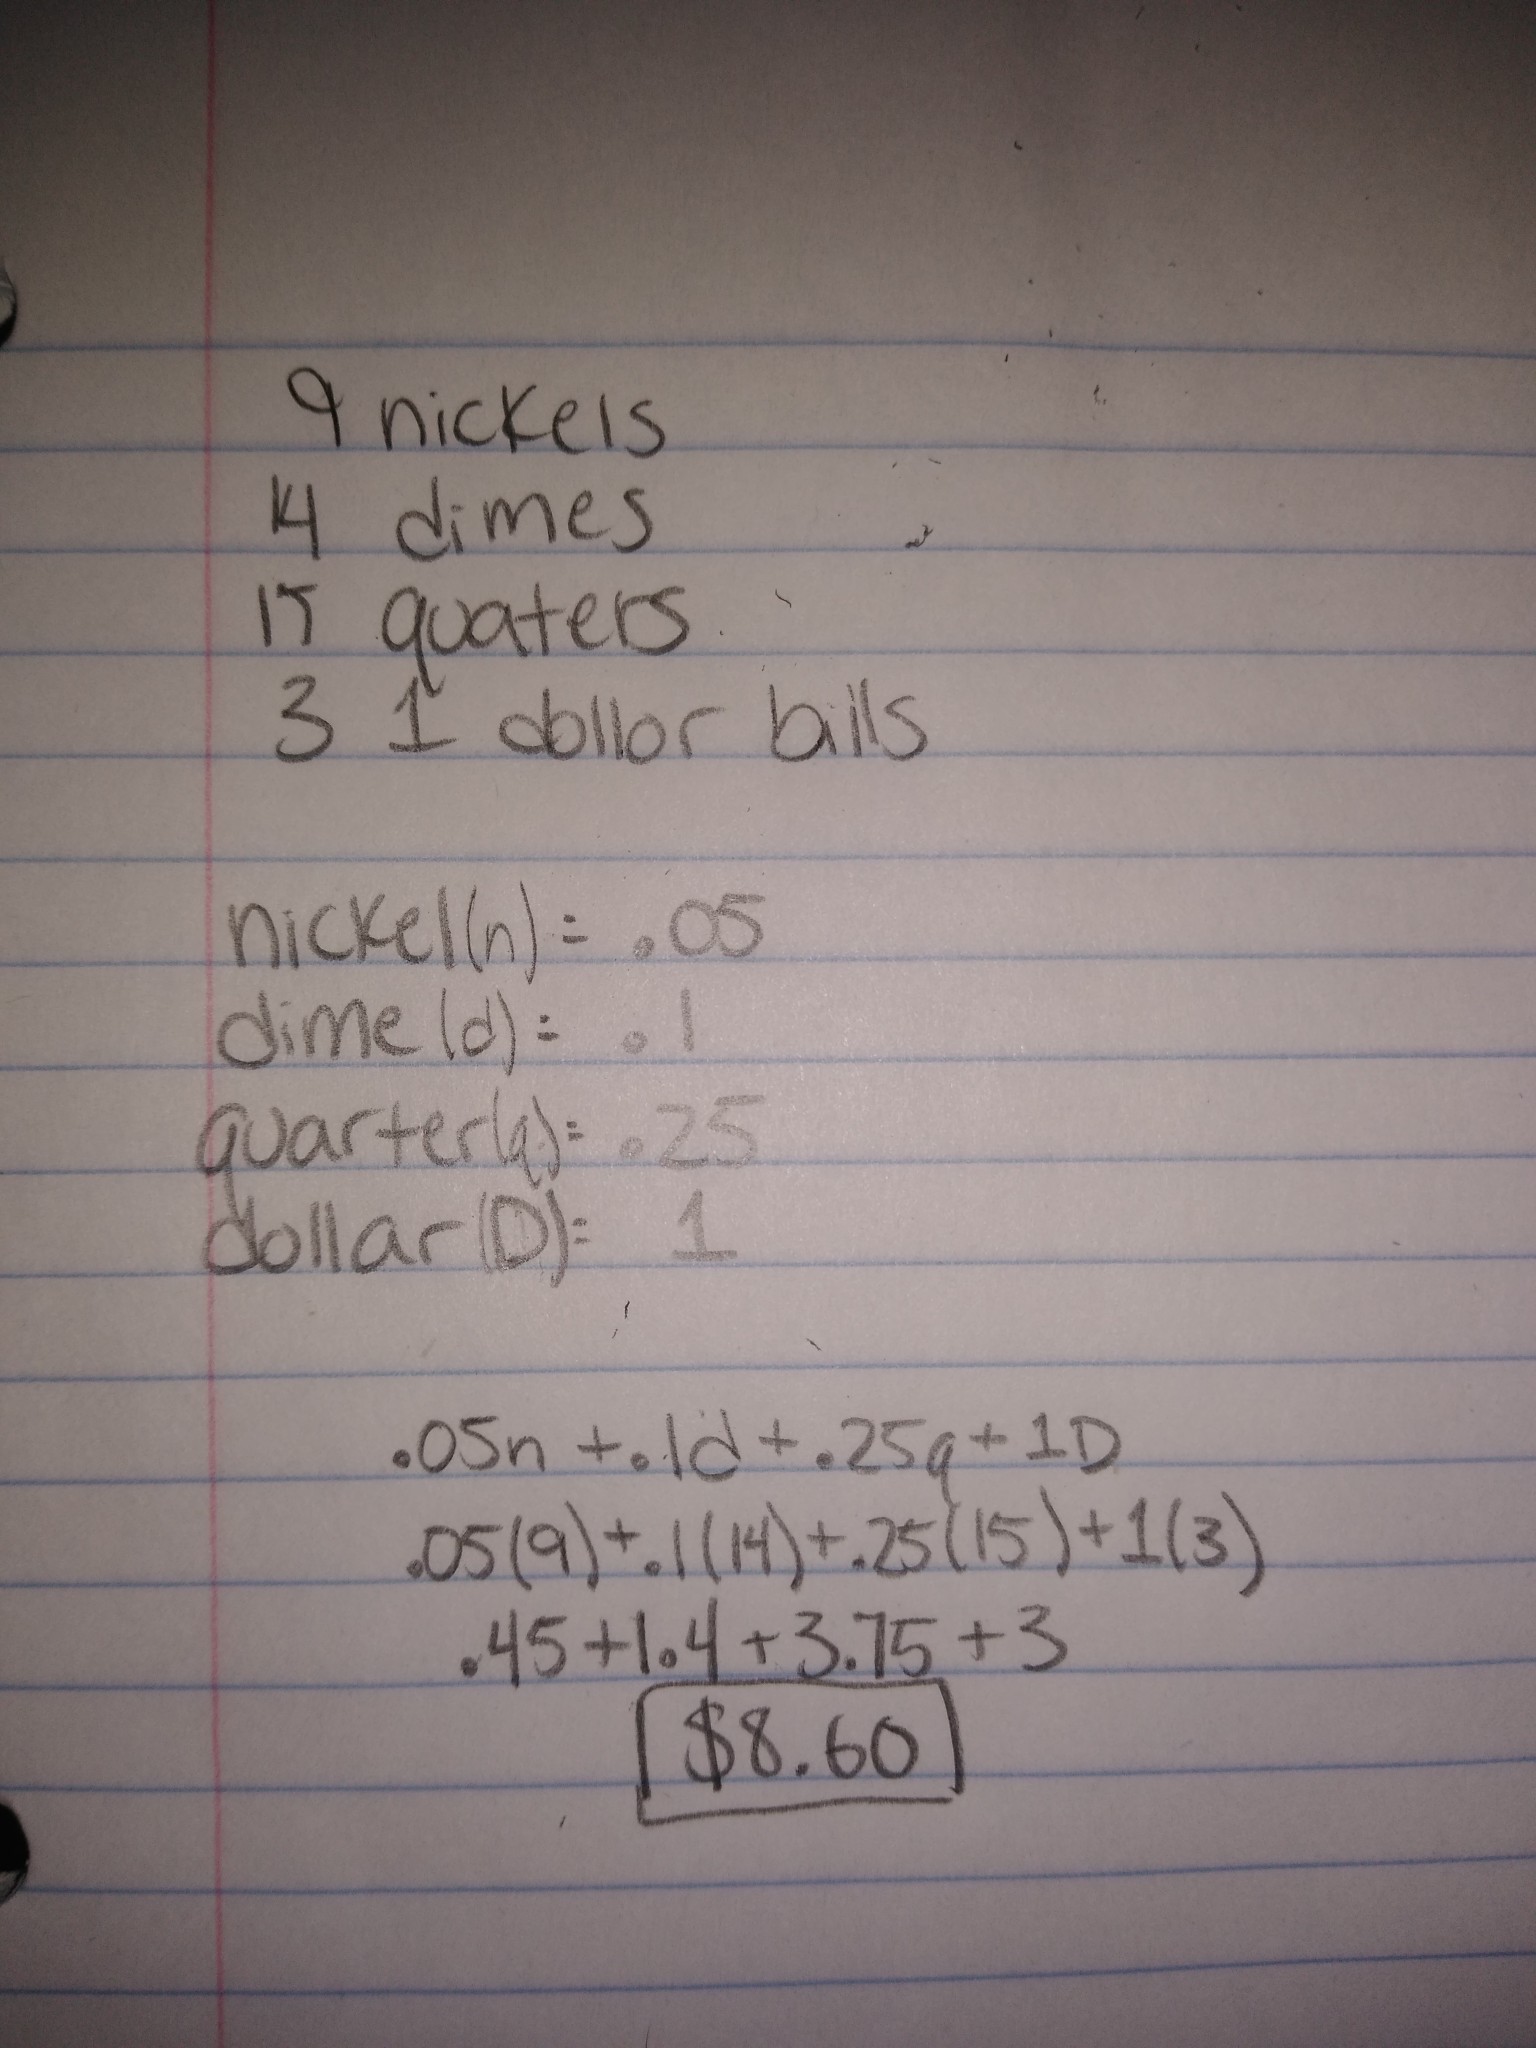 9 nickels
14 dimes
15 quaters
3 1 dollor bills
nickel(n)= .05
dime(d)= .1
quarter(q)= .25
dollar(D)= 1
.05n +.1d+.25q+1D
.05(9)+.1(14)+.25(15)+1(3)
.45+1.4+3.75+3
$8.60